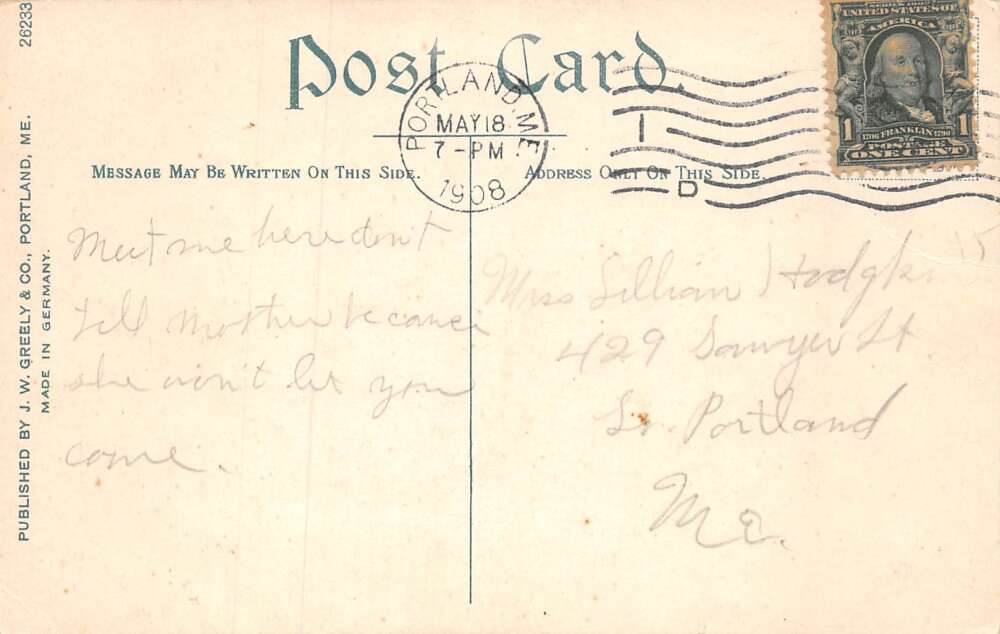 26233
PUBLISHED BY J. W. GREELY & CO., PORTLAND, ME.
MADE IN GERMANY.
Post Card
MESSAGE MAY BE WRITTEN ON THIS SIDE.
ADDRESS ONLY ON THIS SIDE.
PORTLAND, ME.
MAY 18
7-PM
1908
I
D
SERIES 1902
UNITED STATES OF
AMERICA
1 1
1706 FRANKLIN 1790
POSTAGE
ONE CENT
Meet me here don't
tell mother because
she won't let you
come.
Miss Lillian
429 Sawyer St
So. Portland
Me.